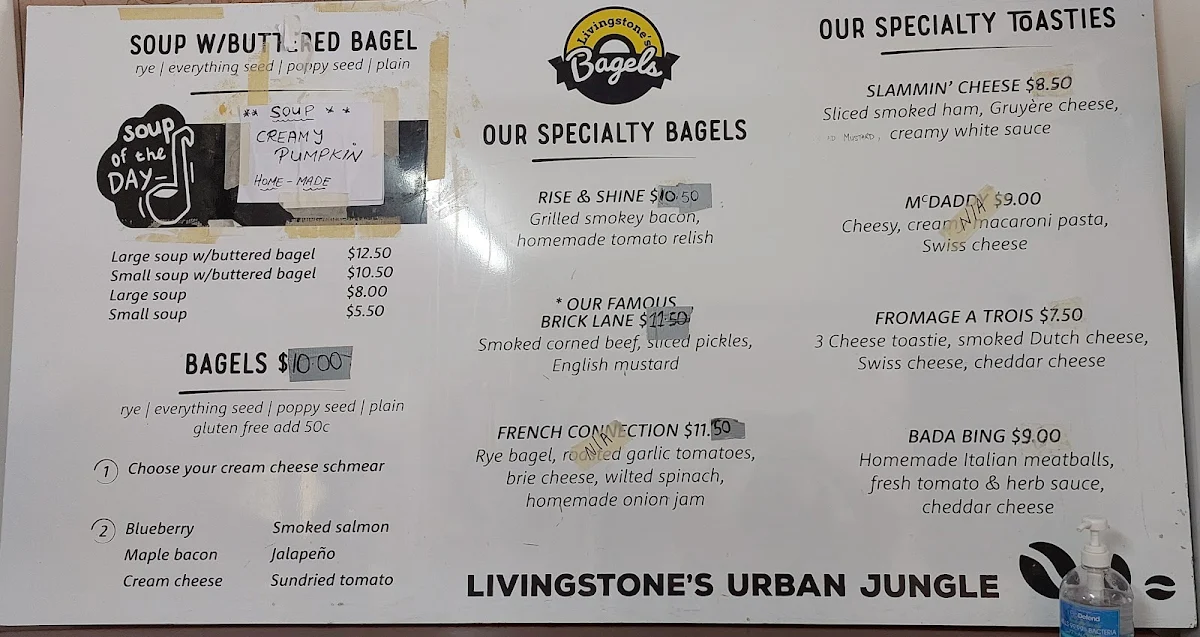 SOUP W/BUTTERED BAGEL
rye | everything seed | poppy seed | plain
soup
of the
DAY-
** SOUP **
CREAMY
PUMPKIN
HOME-MADE
Large soup w/buttered bagel $12.50
Small soup w/buttered bagel $10.50
Large soup $8.00
Small soup $5.50
BAGELS $10.00
rye | everything seed | poppy seed | plain
gluten free add 50c
1 Choose your cream cheese schmear
2 Blueberry Smoked salmon
Maple bacon Jalapeño
Cream cheese Sundried tomato
Livingstone's
Bagels
OUR SPECIALTY BAGELS
RISE & SHINE $10.50
Grilled smokey bacon,
homemade tomato relish
* OUR FAMOUS
BRICK LANE $11.50
Smoked corned beef, sliced pickles,
English mustard
FRENCH CONNECTION $11.50
N/A
Rye bagel, roasted garlic tomatoes,
brie cheese, wilted spinach,
homemade onion jam
OUR SPECIALTY TOASTIES
SLAMMIN' CHEESE $8.50
Sliced smoked ham, Gruyère cheese,
MUSTARD, creamy white sauce
McDADDY $9.00
N/A
Cheesy, creamy macaroni pasta,
Swiss cheese
FROMAGE A TROIS $7.50
3 Cheese toastie, smoked Dutch cheese,
Swiss cheese, cheddar cheese
BADA BING $9.00
Homemade Italian meatballs,
fresh tomato & herb sauce,
cheddar cheese
LIVINGSTONE'S URBAN JUNGLE
BACTERIA